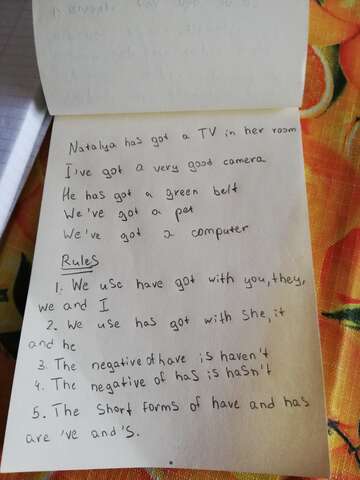 Natalya has got a TV in her room
I've got a very good camera
He has got a green belt
We've got a pet
We've got a computer
Rules
1. We use have got with you, they,
we and I
2. We use has got with she, it
and he
3. The negative of have is haven't
4. The negative of has is hasn't
5. The short forms of have and has
are 've and 's.